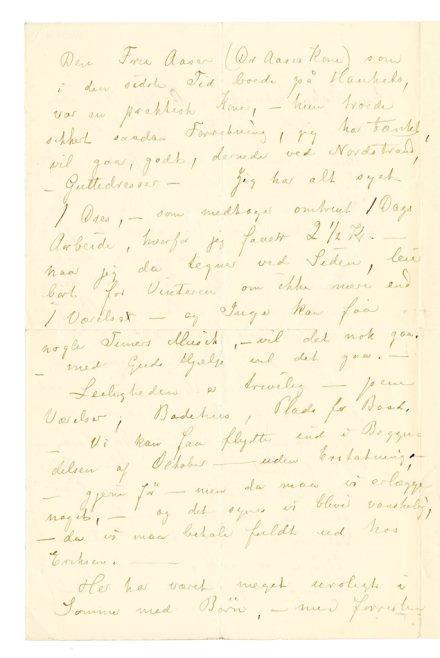 Den Fru Aaser (Dr Aasers Kone) som
i den sidste Tid boede på Haukeli,
var en praktisk Kone, – hun troede
sikkert saadan Forretning, jeg har tænkt,
vil gaa, godt, dernede ved Nordstrand,
– Guttedresser – Jeg har alt syet
1 Dres, – som medtoges omtrent 1 Dags
Arbeide, hvorfor jeg faaet 2 1/2 Kr. –
naar jeg da tegner ved Siden, leie
bort for Vinteren om ikke mere end
1 Værelse – og Inga kan faa
nogle Timers Musik, – vil det nok gaa.
– med Guds Hjælp vil det gaa. –
Leiligheden er trivelig – pene
Værelser, Badehus, Plads for Baad.
– Vi kan faa flytte ind i Begyn-
delsen af Oktober – uden Erstatning, –
– gjerne før – men da maa vi erlægge
noget, – og det synes vi blive vanskelig,
– da vi maa betale fuldt ud hos
Eriksen. –
Her har været meget uroligt i
Sommer med Børn, – men